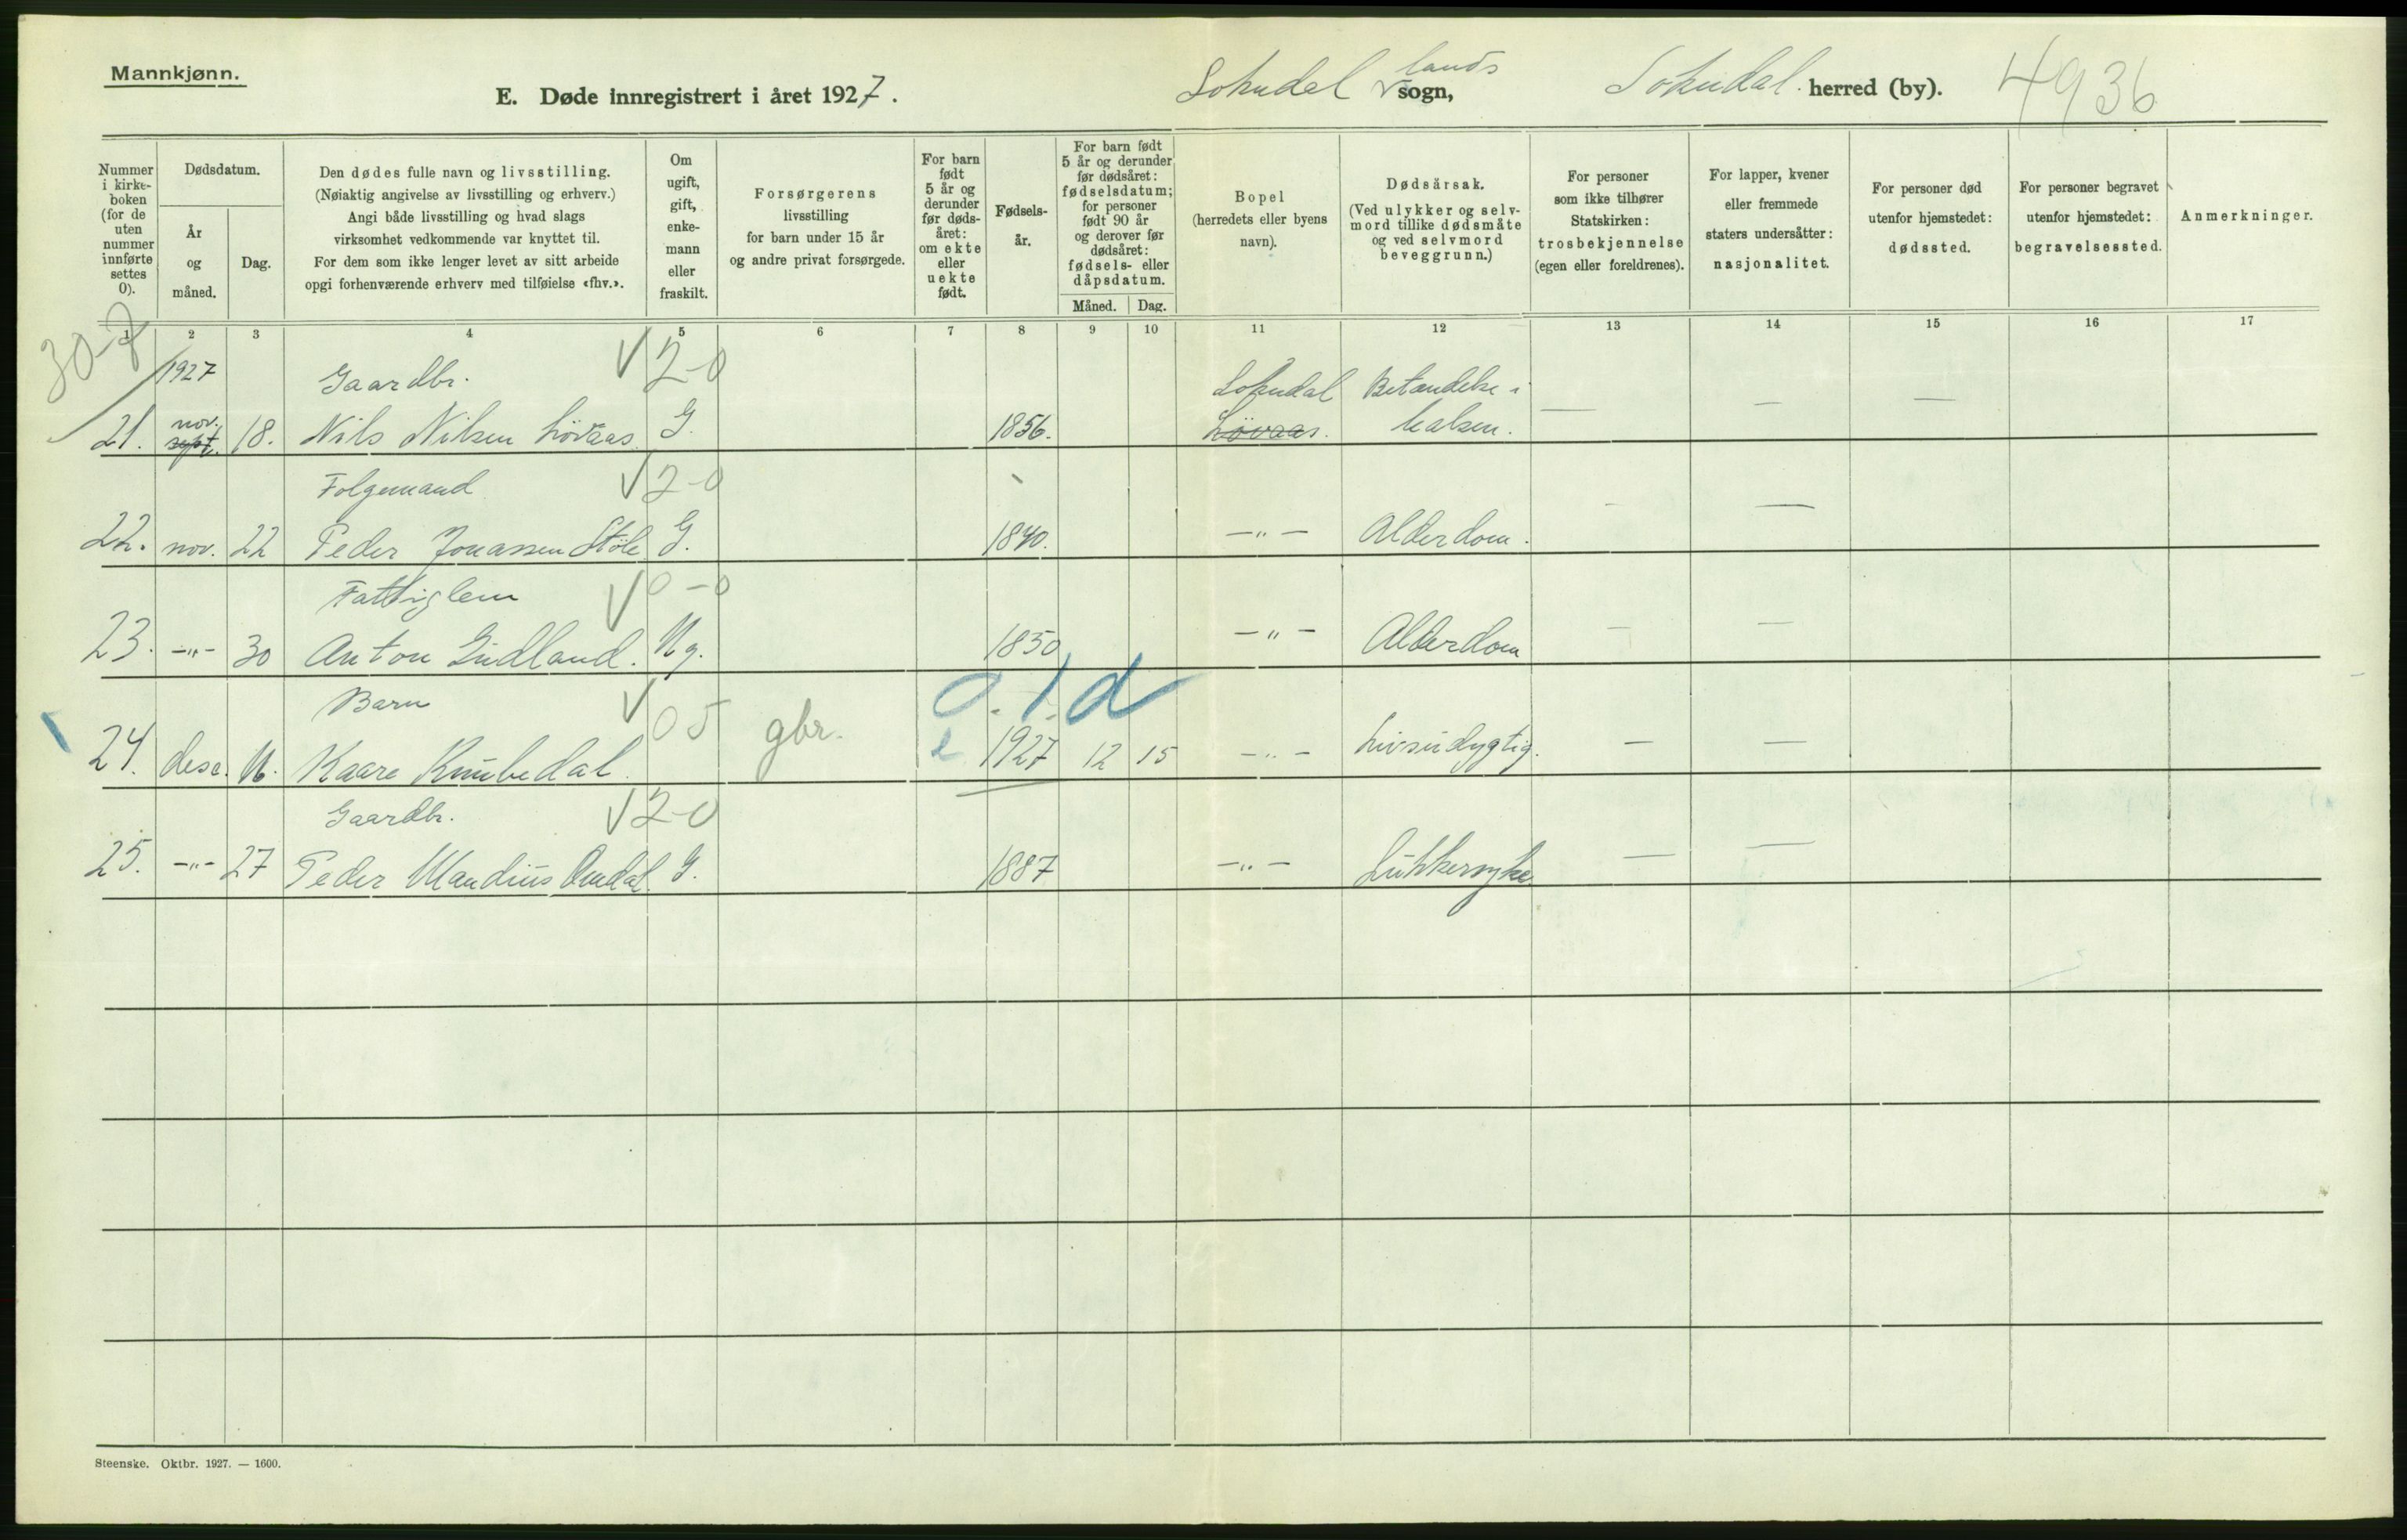 Mannkjønn.
E. Døde innregistrert i året 1927.
Sokndal lands sogn,
Sokndal herred (by).
4936
Nummer i kirke-boken (for de uten nummer innførte settes 0).
Dødsdatum.
År og måned.
Dag.
Den dødes fulle navn og livsstilling.
(Nøiaktig angivelse av livsstilling og erhverv.)
Angi både livsstilling og hvad slags
virksomhet vedkommende var knyttet til.
For dem som ikke lenger levet av sitt arbeide
opgi forhenværende erhverv med tilføielse «fhv.».
Om ugift, gift, enke-mann eller fraskilt.
Forsørgerens
livsstilling
for barn under 15 år
og andre privat forsørgede.
For barn født 5 år og derunder før døds-året: om ekte eller uekte født.
Fødsels-år.
For barn født 5 år og derunder før dødsåret: fødselsdatum; for personer født 90 år og derover før dødsåret: fødsels- eller dåpsdatum.
Måned. Dag.
Bopel
(herredets eller byens
navn).
Dødsårsak.
(Ved ulykker og selv-mord tillike dødsmåte og ved selvmord beveggrunn.)
For personer
som ikke tilhører
Statskirken:
trosbekjennelse
(egen eller foreldrenes).
For lapper, kvener
eller fremmede
staters undersåtter:
nasjonalitet.
For personer død
utenfor hjemstedet:
dødssted.
For personer begravet
utenfor hjemstedet:
begravelsessted.
Anmerkninger.
1 2 3 4 5 6 7 8 9 10 11 12 13 14 15 16 17
30-7
1927 Gaardbr. √ 2-0 Sokndal Betændelse i
21. nov. sept. 18. Nils Nilsen Løvaas G. 1856. Løvaas. halsen.
Folgemand √ 2-0
22. nov. 22 Peder Jonassen Støle G. 1840. —„— Alderdom.
Fattiglem √ 0-0
23. —„— 30 Anton Gudland. Ug. 1850 —„— Alderdom
Barn √ 05 gbr. 0.1d
24. dese. 16. Kaare Knubedal. e 1927 12 15 —„— Livsudygtig.
Gaardbr. √ 2-0
25. —„— 27 Peder Mandius Omdal. G. 1887 —„— Sukkersyke
Steenske. Oktbr. 1927. — 1600.